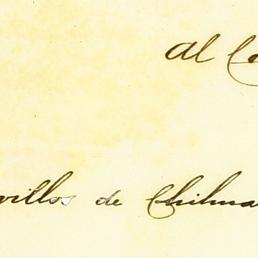 Al C
villos de Chilma